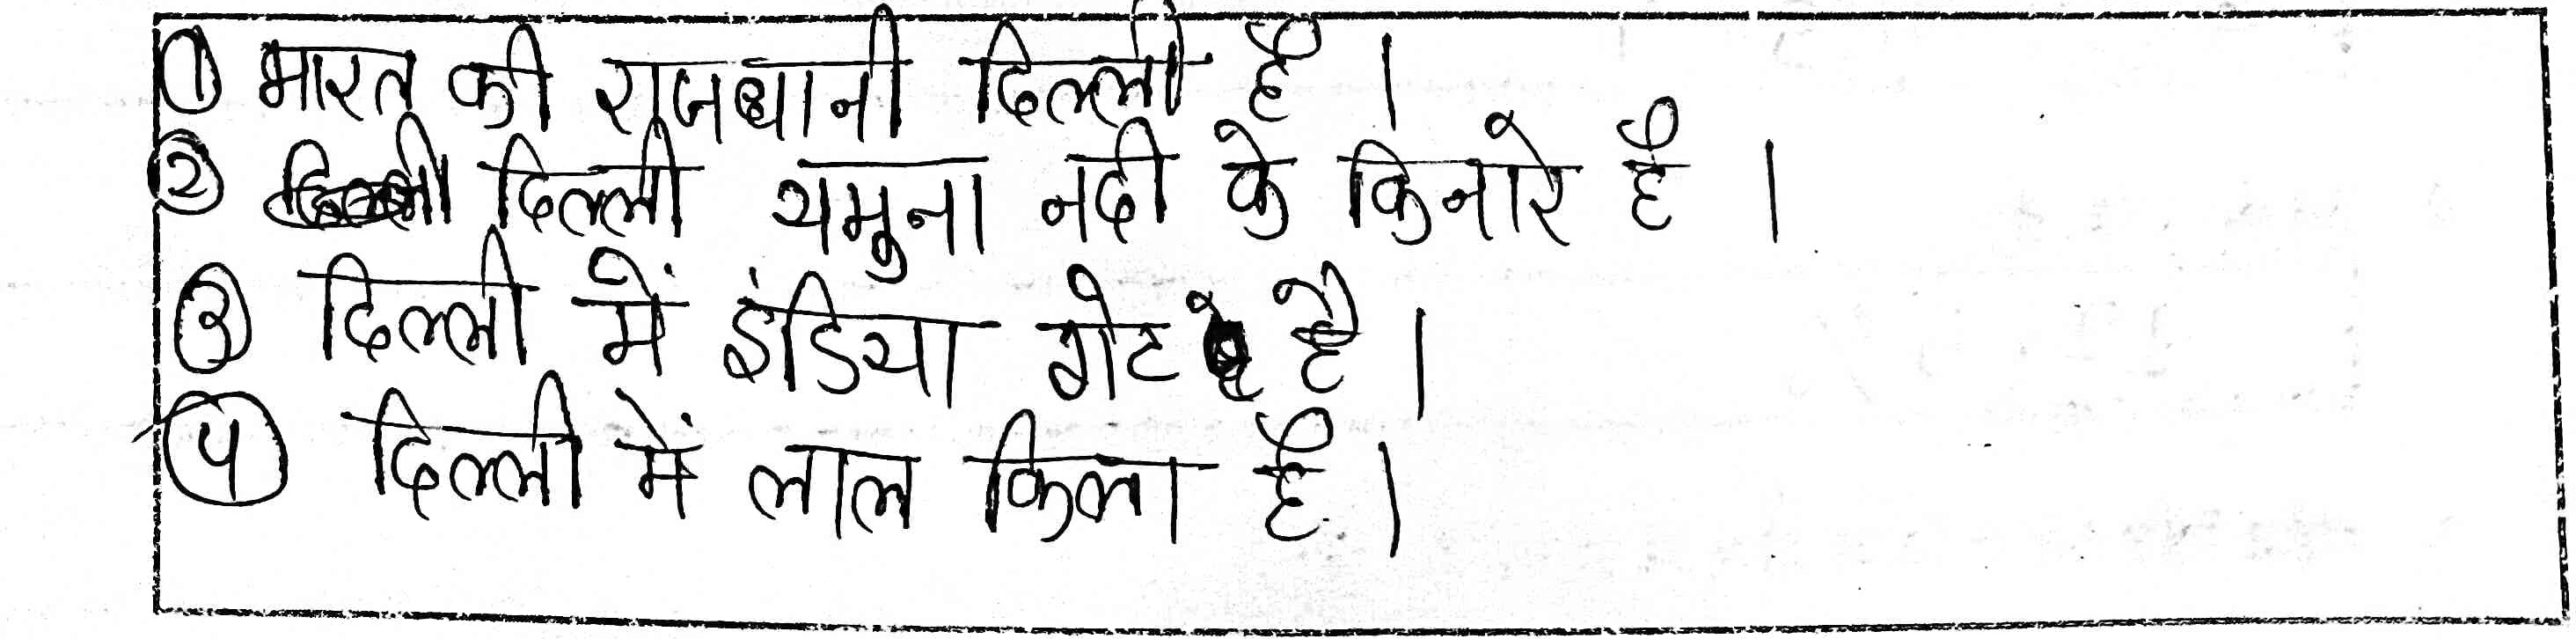 ① भारत की राजधानी दिल्ली है ।
② दिल्ली यमुना नदी के किनारे है ।
③ दिल्ली में इंडिया गेट है ।
④ दिल्ली में लाल किला है ।